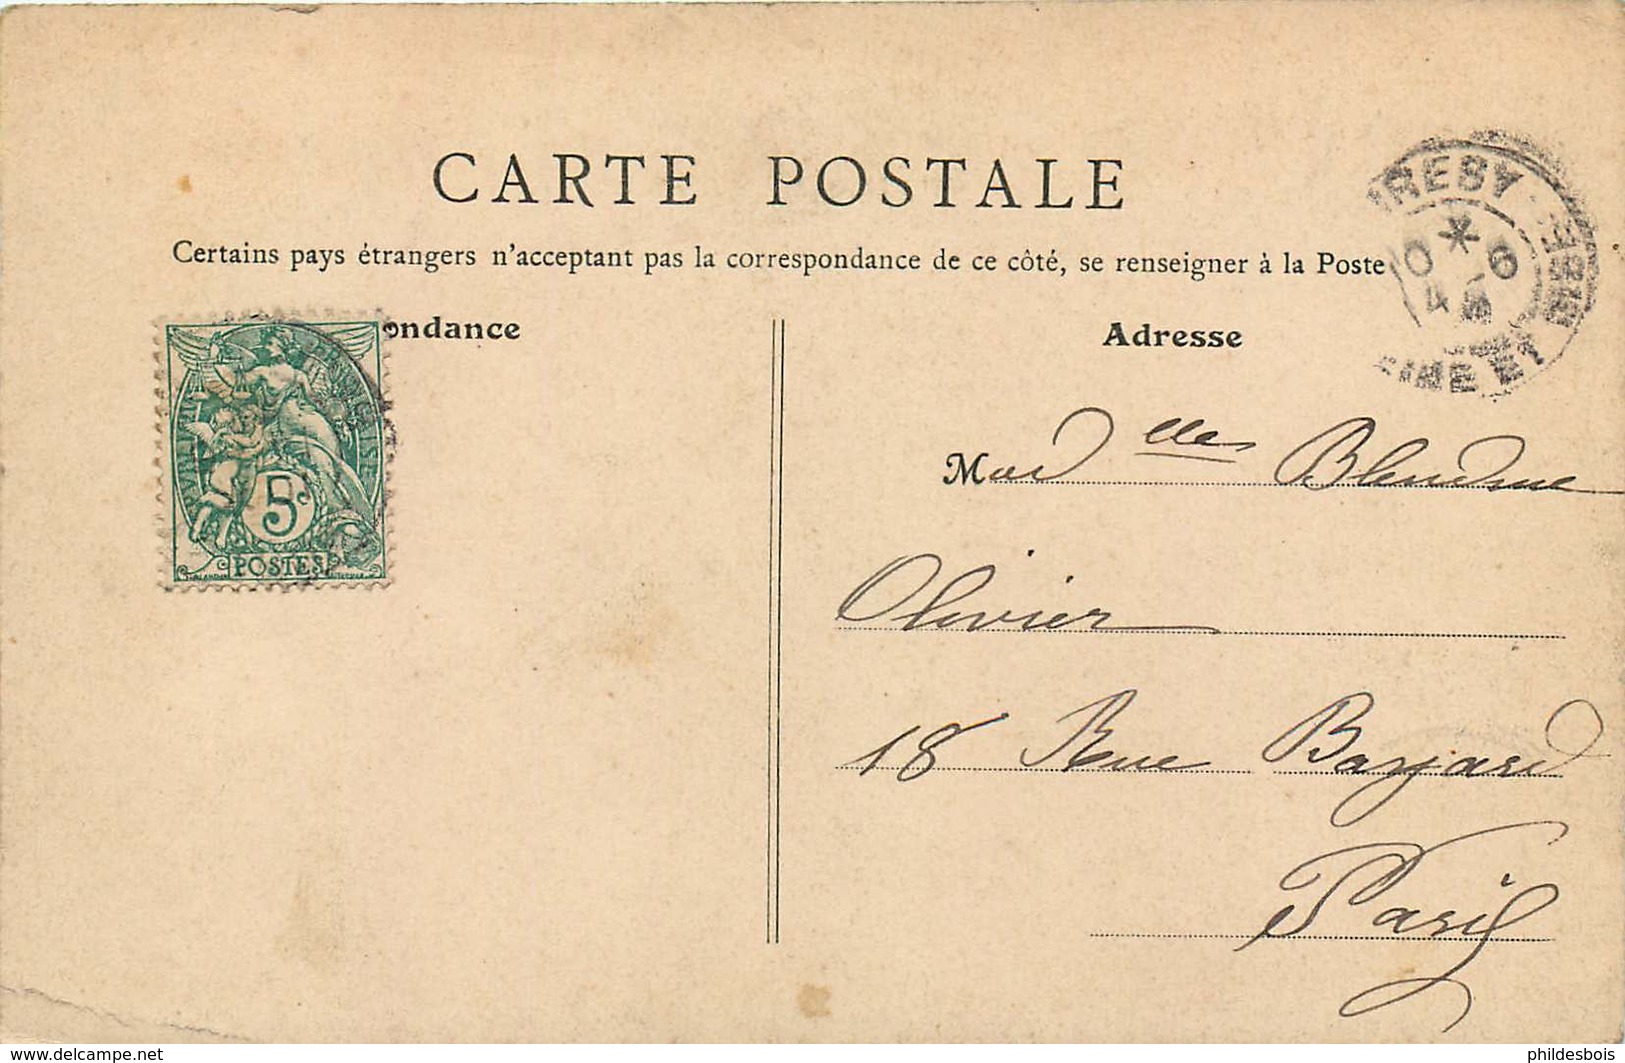 CARTE POSTALE
Certains pays étrangers n'acceptant pas la correspondance de ce côté, se renseigner à la Poste
ondance
Adresse
Mad elles
Olivier
18 Rue Bayard
Paris
5c
POSTES
RESY
SEINE ET
www.delcampe.net
phildesbois